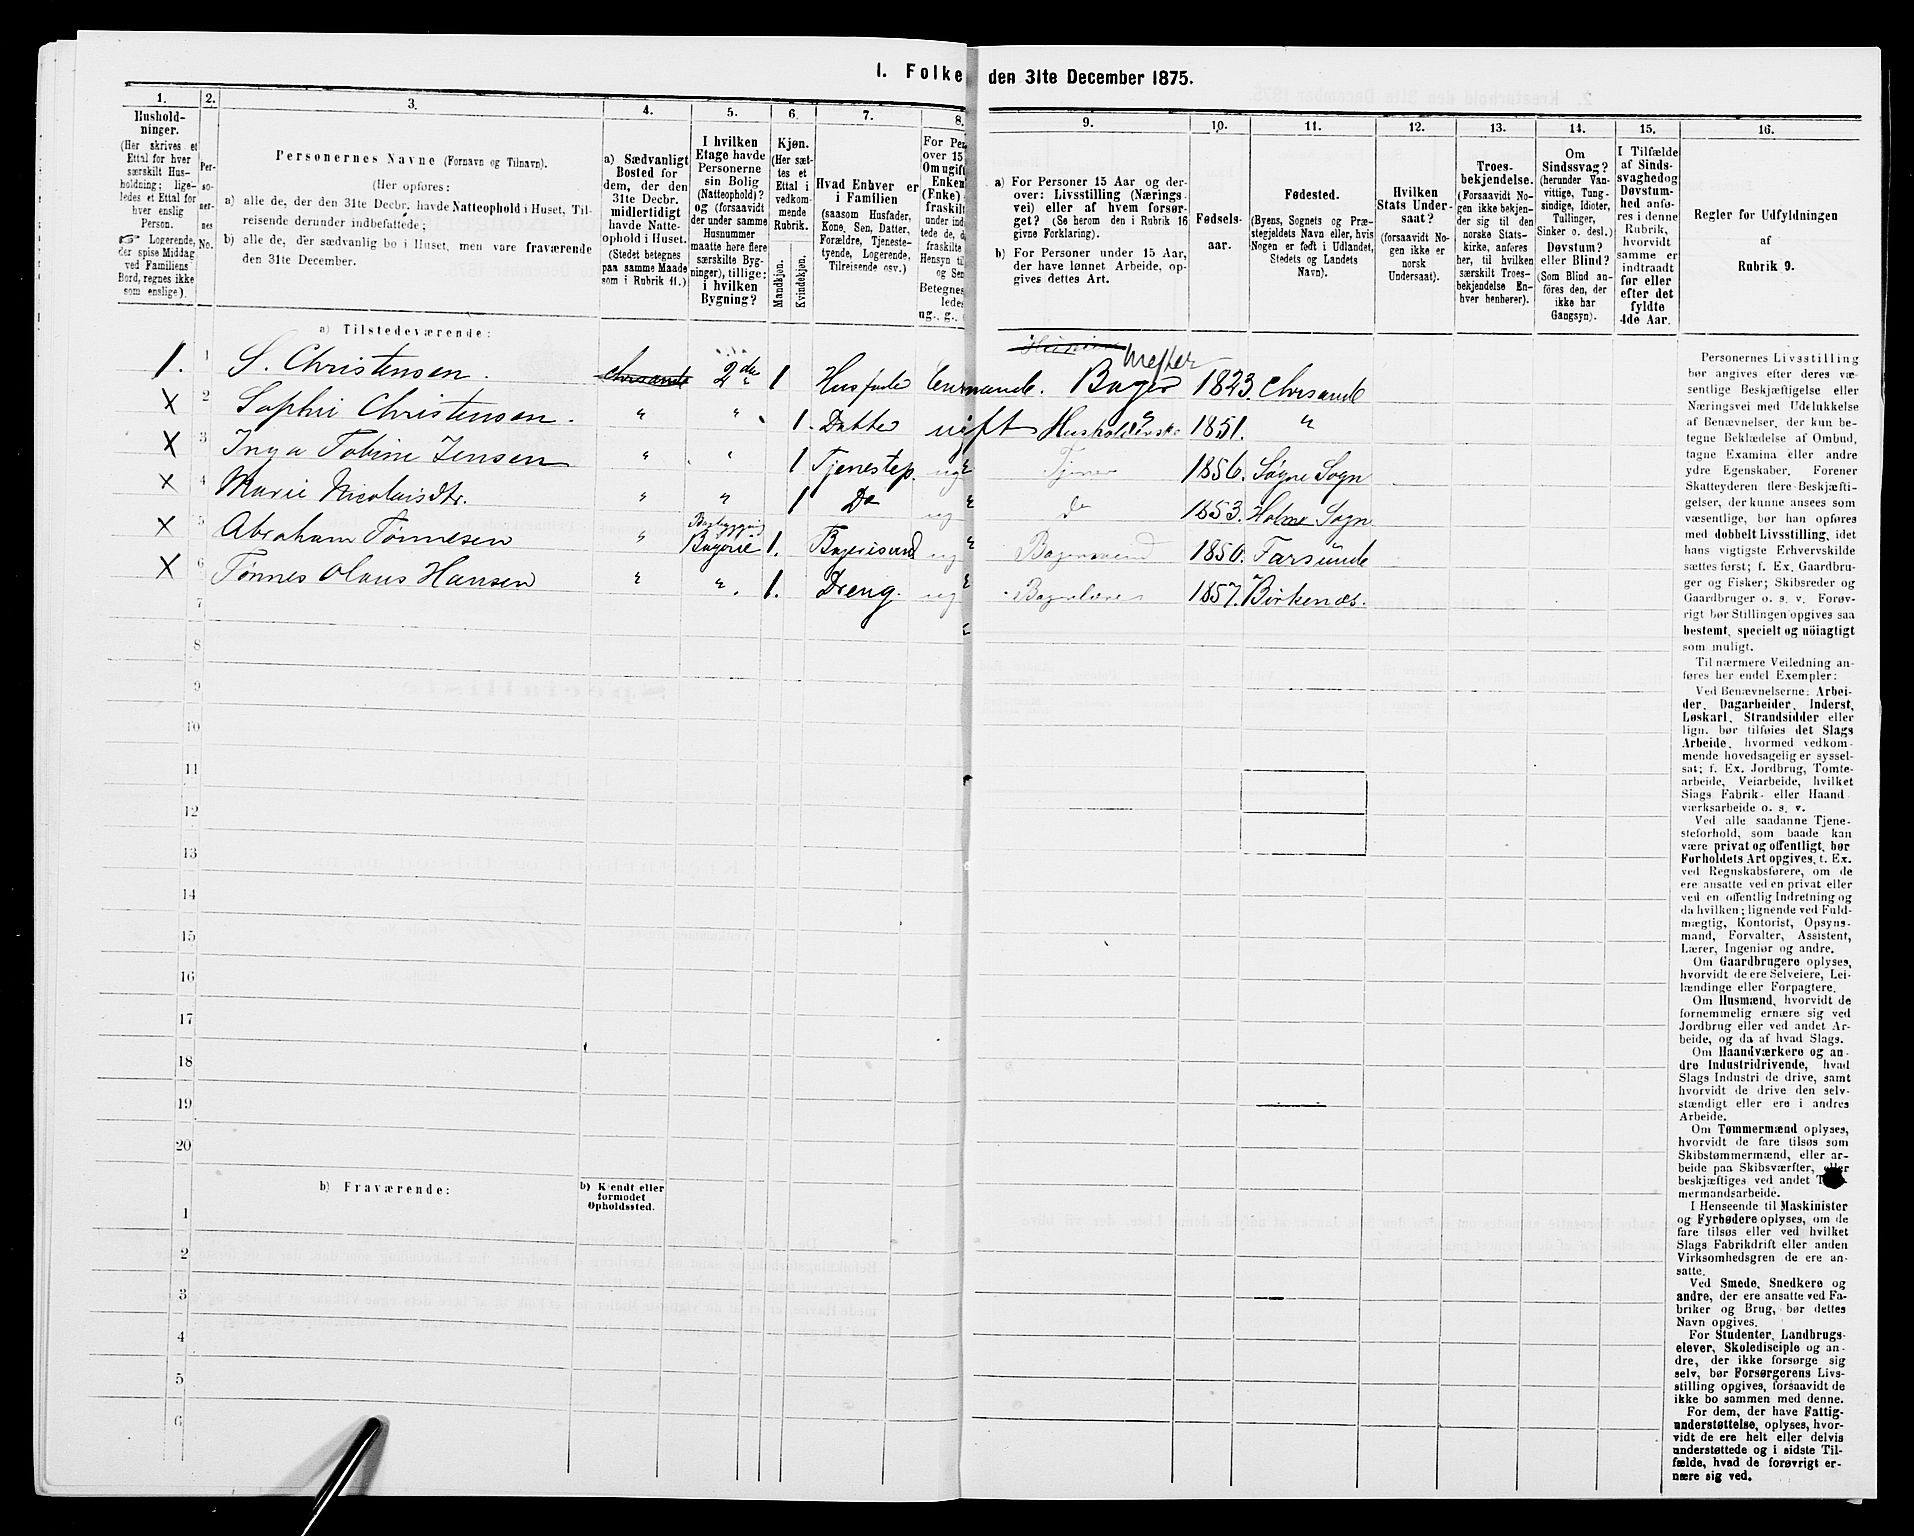 1. Folke den 31te December 1875.
1. 2. 3. 4. 5. 6. 7. 8. 9. 10. 11. 12. 13. 14. 15. 16.
Hushold-
ninger.
(Her skrives et
Ettal for hver
særskilt Hus-
holdning; lige-
ledes et Ettal for
hver enslig
Person.
☞ Logerende,
der spise Middag
ved Familiens
Bord, regnes ikke
som enslige).
Per-
so-
ner-
nes
No.
Personernes Navne (Fornavn og Tilnavn).
(Her opføres:
a) alle de, der den 31te Decbr. havde Natteophold i Huset, Til-
reisende derunder indbefattede;
b) alle de, der sædvanlig bo i Huset, men vare fraværende
den 31te December.
a) Sædvanligt
Bosted for
dem, der den
31te Decbr.
midlertidigt
havde Natte-
ophold i Huset.
(Stedet betegnes
paa samme Maade
som i Rubrik 11.)
I hvilken
Etage havde
Personerne
sin Bolig
(Natteophold)?
og (forsaavidt
der under samme
Husnummer
maatte høre flere
særskilte Byg-
ninger), tillige:
i hvilken
Bygning?
Kjøn.
(Her sæt-
tes et
Ettal i
vedkom-
mende
Rubrik.
Mandkjøn.
Kvindekjøn.
Hvad Enhver er
i Familien
(saasom Husfader,
Kone, Søn, Datter,
Forældre, Tjeneste-
tyende, Logerende,
Tilreisende osv.)
For Per
over 15
Om ugift
Enken
(Enke)
fraskilt
under ind-
tede de, d
fraskilte
Hensyn til
og Sen
Betegnes
ledes
ug., g.,
a) For Personer 15 Aar og der-
over: Livsstilling (Nærings-
vei) eller af hvem forsør-
get? (Se herom den i Rubrik 16
givne Forklaring).
b) For Personer under 15 Aar,
der have lønnet Arbeide, op-
gives dettes Art.
Fødsels-
aar.
Fødested.
(Byens, Sognets og Præ-
stegjeldets Navn eller, hvis
Nogen er født i Udlandet,
Stedets og Landets
Navn).
Hvilken
Stats Under-
saat?
(forsaavidt No-
gen ikke er
norsk
Undersaat).
Troes-
bekjendelse.
(Forsaavidt No-
gen ikke bekjen-
der sig til den
norske Stats-
kirke, anføres
her, til hvilken
særskilt Troes-
bekjendelse En-
hver henhører).
Om
Sindssvag?
(herunder Van-
vittige, Tung-
sindige, Idioter,
Tullinger,
Sinker o. desl.)
Døvstum?
eller Blind?
(Som Blind an-
føres den, der
ikke har
Gangsyn).
I Tilfælde
af Sinds-
svaghed og
Døvstum-
hed anfø-
res i denne
Rubrik,
hvorvidt
samme er
indtraadt
før eller
efter det
fyldte
4de Aar.
Regler for Udfyldningen
af
Rubrik 9.
a) Tilstedeværende:
1. 1 S. Christensen. Chrsande 2den 1 Husfader Enkemande. Bager Mester 1823. Chrsande
X 2 Sophie Christensen. " " 1. Datter ugift Husholderske 1851. "
X 3 Inga Tobine Jensen " " 1 Tjenestep. ug Tjener 1856. Søgne Sogn
X 4 Marie Nicolaisdtr. " " 1 Do ug do 1853. Holme Sogn
X 5 Abraham Tønnesen " Bagbygning Bageri 1. Bagerisvend ug Bagersvend 1850. Farsunde
X 6 Tønnes Olaus Hansen " " 1. Dreng. ug Bagerlære 1857. Birkenæs.
7
8
9
10
11
12
13
14
15
16
17
18
19
20
b) Fraværende:
b) Kjendt eller
formodet
Opholdssted.
1
2
3
4
5
6
Personernes Livsstilling
bør angives efter deres væ-
sentlige Beskjæftigelse eller
Næringsvei med Udelukkelse
af Benævnelser, der kun be-
tegne Beklædelse af Ombud,
tagne Examina eller andre
ydre Egenskaber. Forener
Skatteyderen flere Beskjæfti-
gelser, der kunne ansees som
væsentlige, bør han opføres
med dobbelt Livsstilling, idet
hans vigtigste Erhvervskilde
sættes først; f. Ex. Gaardbru-
ger og Fisker; Skibsreder og
Gaardbruger o. s. v. Forøv-
rigt bør Stillingen opgives saa
bestemt, specielt og nöiagtigt
som muligt.
Til nærmere Veiledning an-
føres her endel Exempler:
Ved Benævnelserne: Arbei-
der, Dagarbeider, Inderst,
Løskarl, Strandsidder eller
lign. bør tilføies det Slags
Arbeide, hvormed vedkom-
mende hovedsagelig er syssel-
sat; f. Ex. Jordbrug, Tomte-
arbeide, Veiarbeide, hvilket
Slags Fabrik- eller Haand
værksarbeide o. s. v.
Ved alle saadanne Tjene-
steforhold, som baade kan
være privat og offentligt, bør
Forholdets Art opgives, t. Ex.
ved Regnskabsførere, om de
ere ansatte ved en privat eller
ved en offentlig Indretning og
da hvilken; lignende ved Fuld-
mægtig, Kontorist, Opsyns-
mand, Forvalter, Assistent,
Lærer, Ingeniør og andre.
Om Gaardbrugere oplyses,
hvorvidt de ere Selveiere, Lei-
lændinge eller Forpagtere.
Om Husmænd, hvorvidt de
fornemmelig ernære sig ved
Jordbrug eller ved andet Ar-
beide, og da af hvad Slags.
Om Haandværkere og an-
dre Industridrivende, hvad
Slags Industri de drive, samt
hvorvidt de drive den selv-
stændigt eller ere i andres
Arbeide.
Om Tømmermænd oplyses,
hvorvidt de fare tilsøs som
Skibstømmermænd, eller ar-
beide paa Skibsværfter, eller
beskjæftiges ved andet Tøm-
mermandsarbeide.
I Henseende til Maskinister
og Fyrbødere oplyses, om de
fare tilsøs eller ved hvilket
Slags Fabrikdrift eller anden
Virksomhedsgren de ere an-
satte.
Ved Smede, Snedkere og
andre, der ere ansatte ved Fa-
briker og Brug, bør dettes
Navn opgives.
For Studenter, Landbrugs-
elever, Skoledisciple og an-
dre, der ikke forsørge sig
selv, bør Forsørgerens Livs-
stilling opgives, forsaavidt de
ikke bo sammen med denne.
For dem, der have Fattig-
understøttelse, oplyses, hvor-
vidt de ere helt eller delvis
understøttede og i sidste Til-
fælde, hvad de forøvrigt er-
nære sig ved.